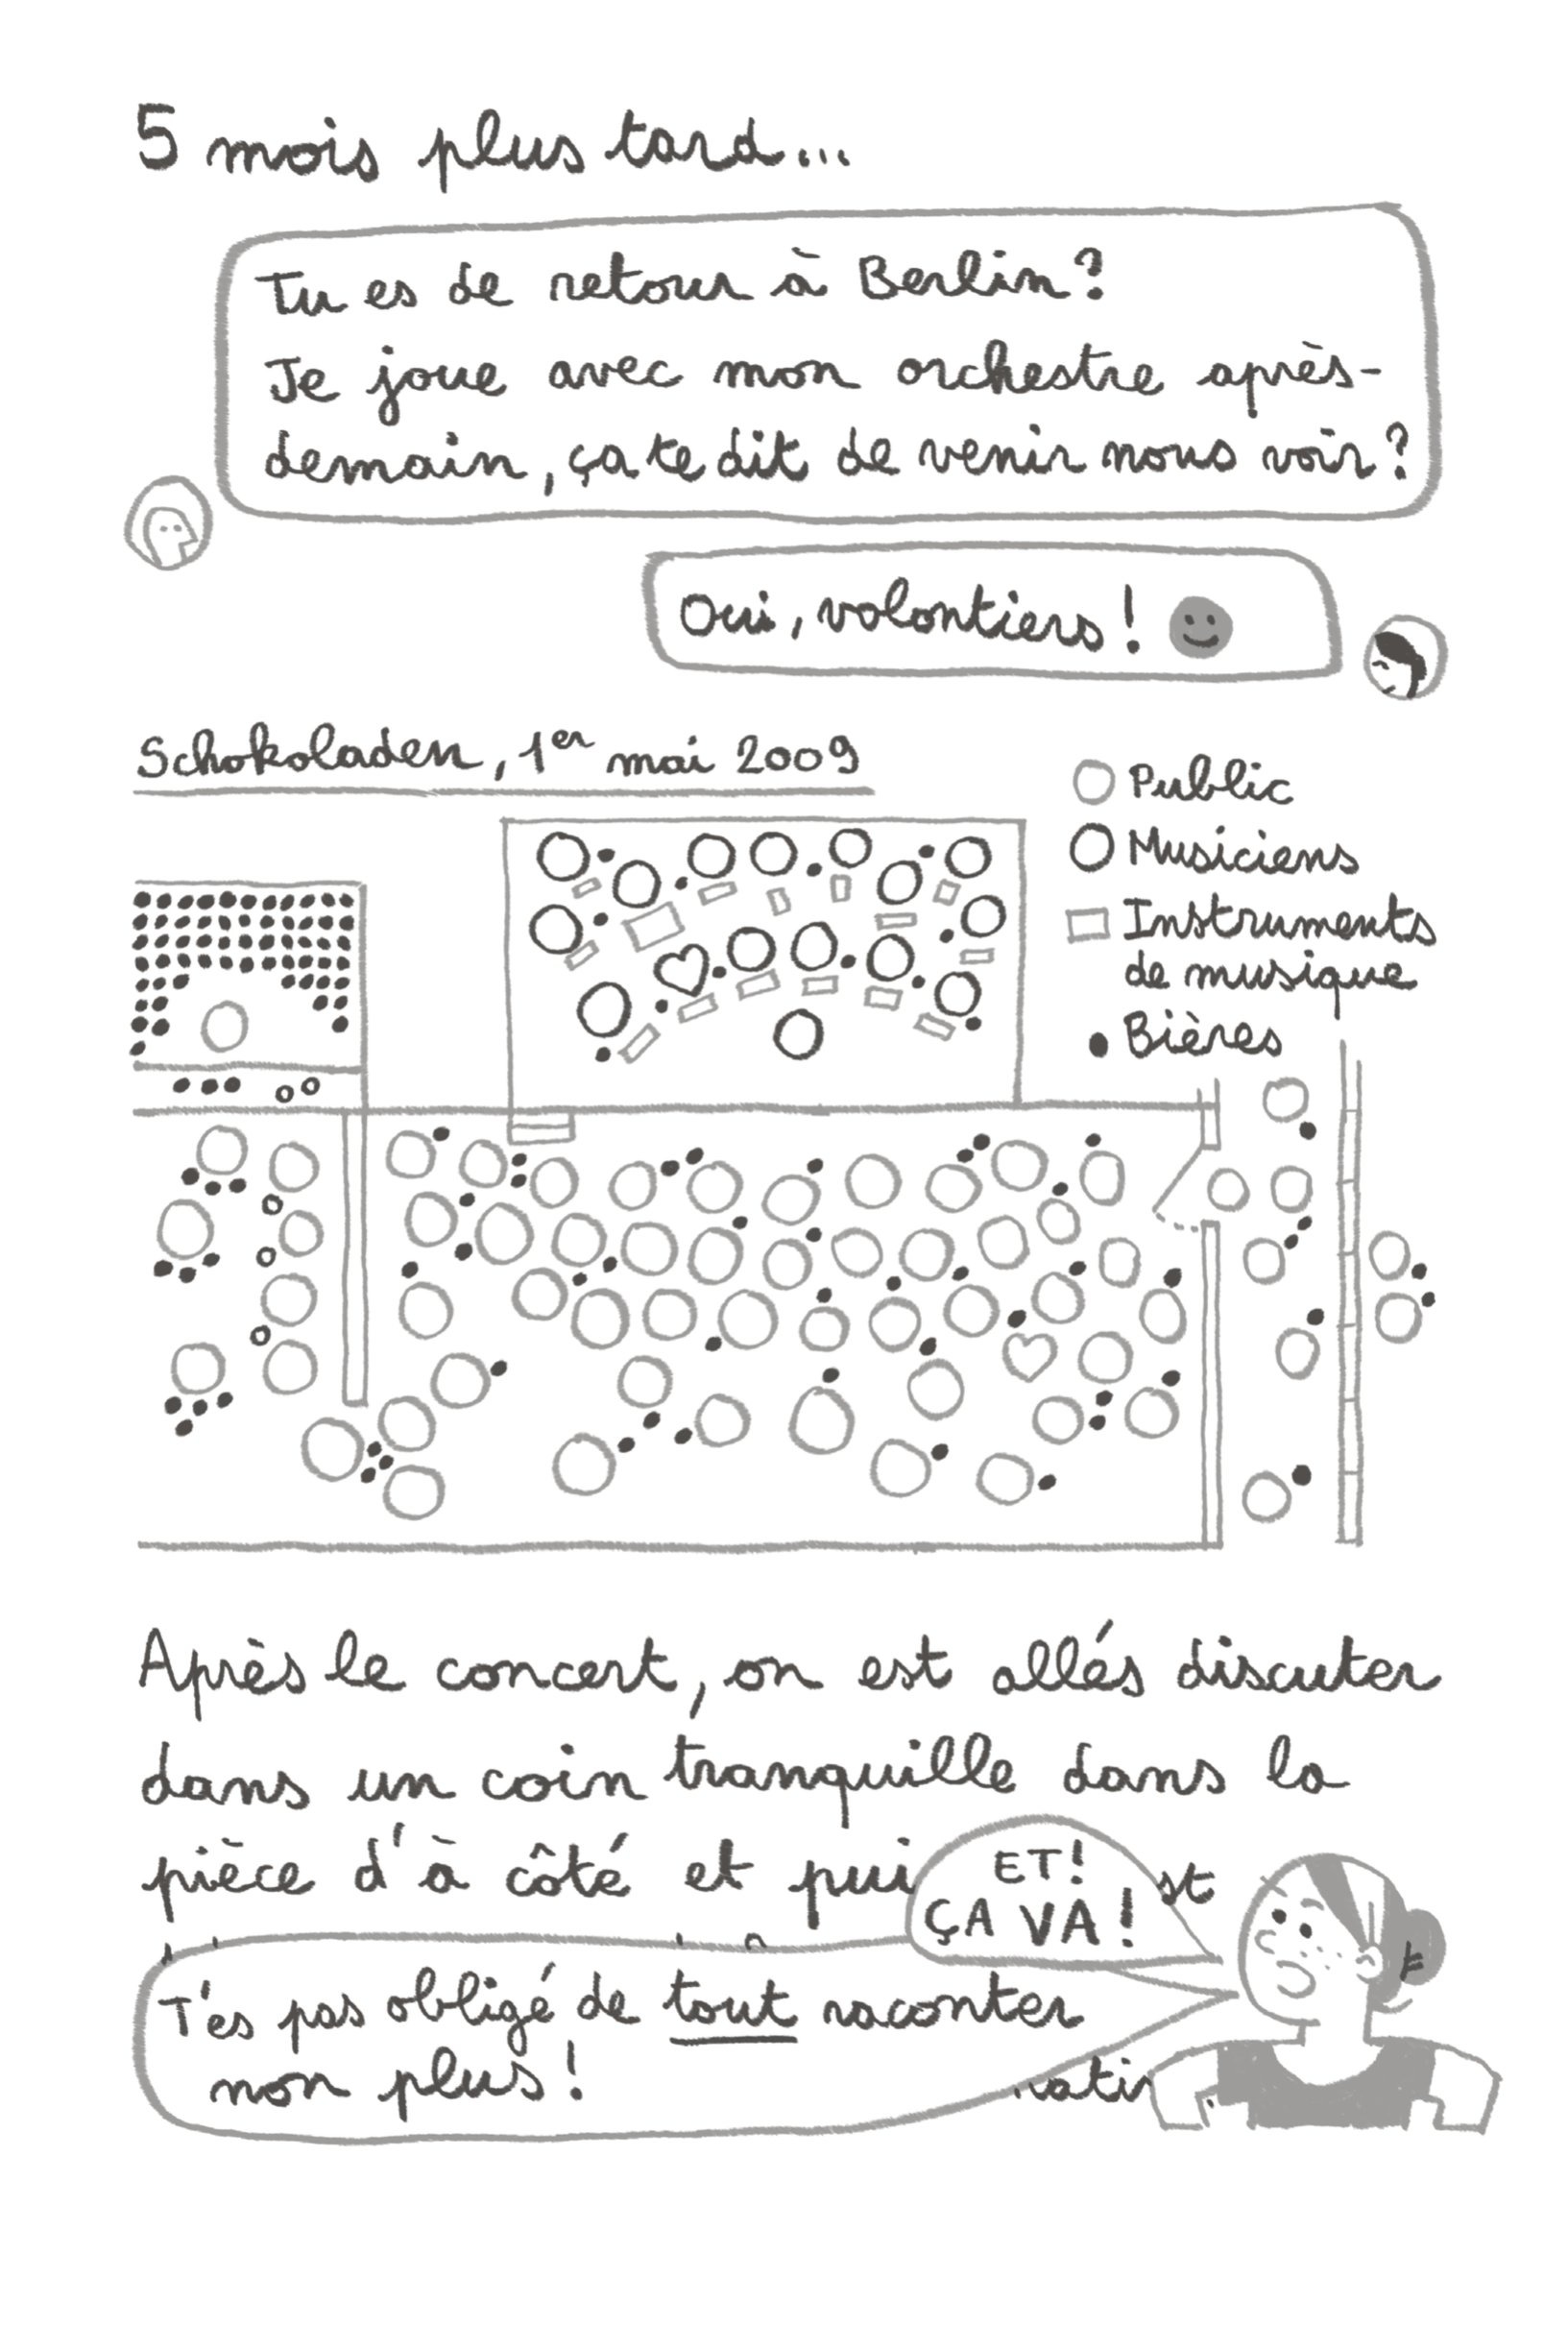 5 mois plus tard...
Tu es de retour à Berlin?
Je joue avec mon orchestre après-
demain, ça te dit de venir nous voir?
Oui, volontiers!
Schokoladen, 1er mai 2009
Public
Musiciens
Instruments
de musique
Bières
Après le concert, on est allés discuter
dans un coin tranquille dans la
pièce d'à côté et
ET!
ÇA VA!
T'es pas obligé de tout raconter
non plus!